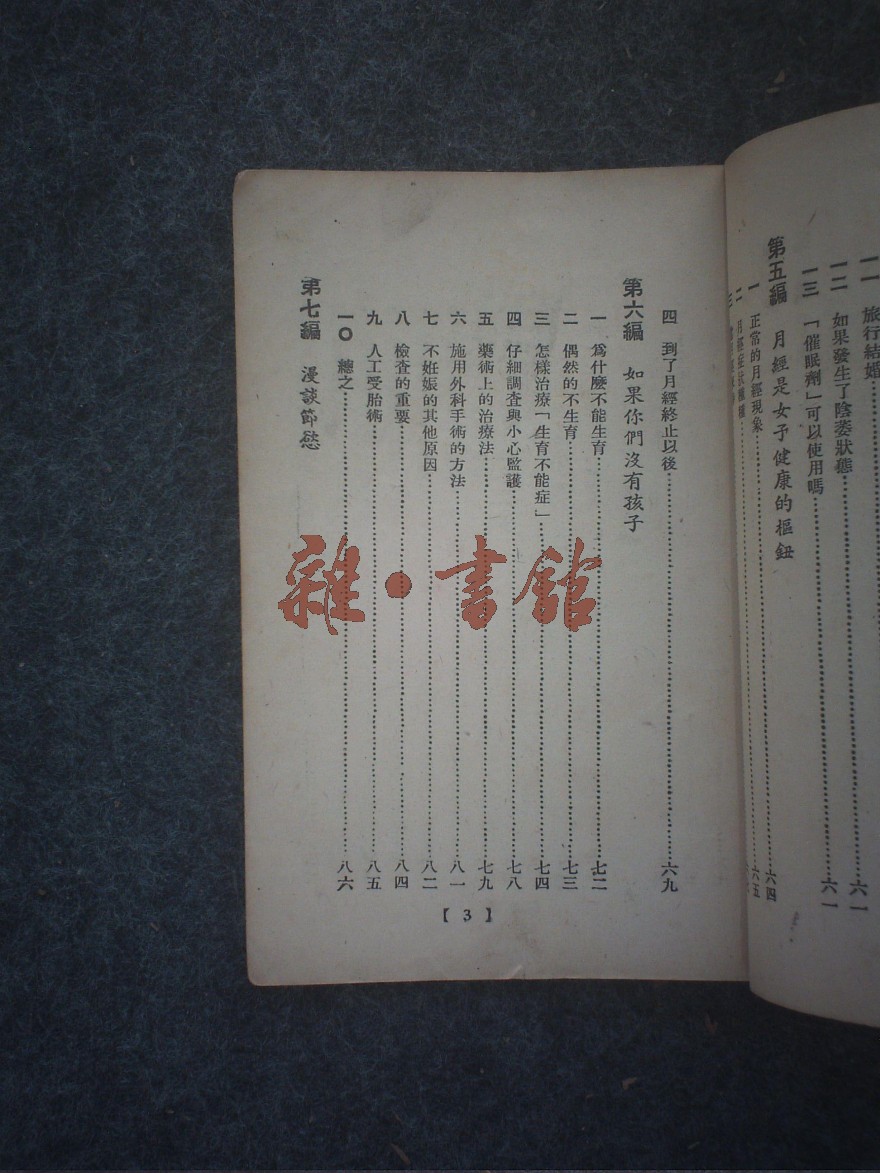 一一 旅行結婚……六一
一二 如果發生了陰萎狀態
一三 「催眠劑」可以使用嗎……六一
第五編 月經是女子健康的樞鈕
一 正常的月經現象……六四
二……六五
四 到了月經終止以後……六九
第六編 如果你們沒有孩子
一 爲什麼不能生育……七二
二 偶然的不生育……七三
三 怎樣治療「生育不能症」……七四
四 仔細調查與小心監護……七八
五 藥術上的治療法……七九
六 施用外科手術的方法……八一
七 不妊娠的其他原因……八二
八 檢查的重要……八四
九 人工受胎術……八五
一〇 總之……八六
第七編 漫談節慾
【3】
雜·書館